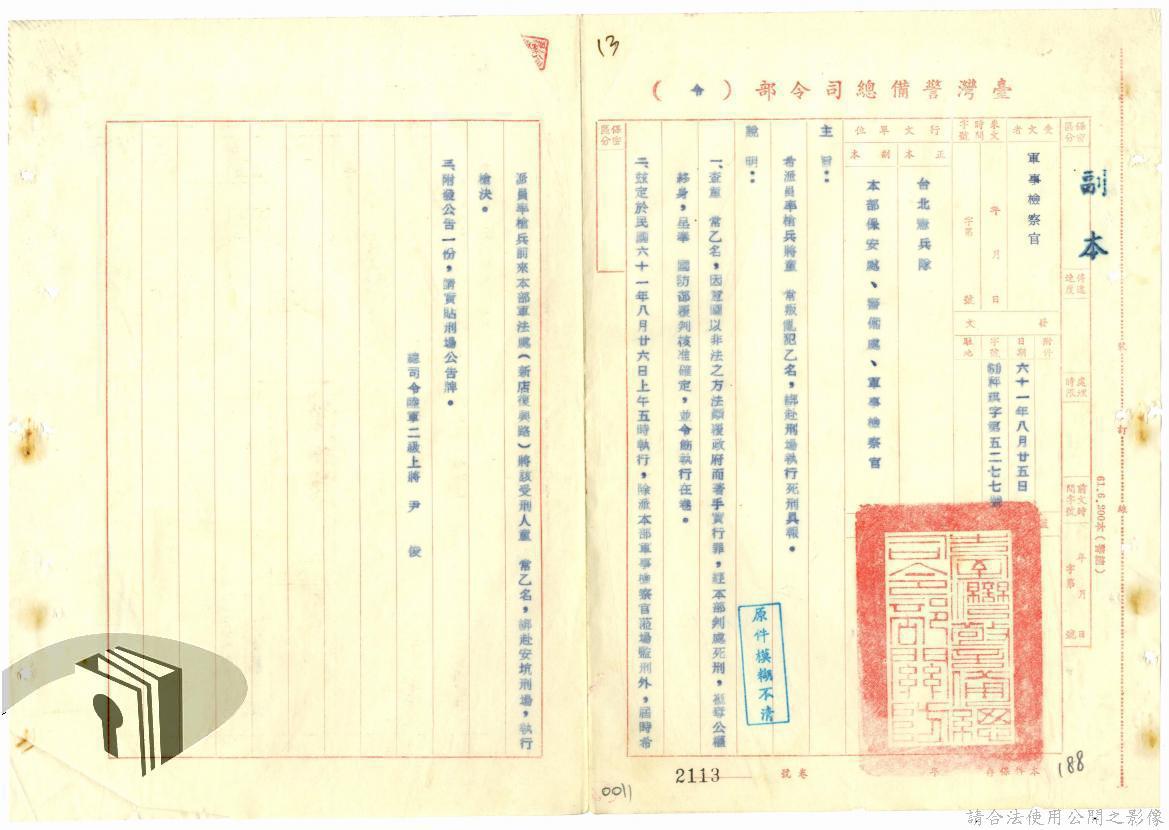 13
臺灣警備總司令部（令）
副本
保密區分
受文者
軍事檢察官
傳遞速度
處理時限
前文時間字號
年 月 日
字第 號
來文時間字號
年 月 日
字第 號
行文單位
正本
台北憲兵隊
副本
本部保安處、警備處、軍事檢察官
發文
附件
日期
六十一年八月廿五日
字號
字第五二七七號
駐地
主旨：
希派員率槍兵將童　常叛亂犯乙名，綁赴刑場執行死刑具報。
說明：
一、查童　常乙名，因意圖以非法之方法顛覆政府而著手實行罪，經本部判處死刑，褫奪公權
終身，呈奉　國防部覆判核准確定，並令飭執行在卷。
二、茲定於民國六十一年八月廿六日上午五時執行，除派本部軍事檢察官蒞場監刑外，屆時希
派員率槍兵前來本部軍法處（新店復興路）將該受刑人童　常乙名，綁赴安坑刑場，執行
槍決。
三、附發公告一份，請實貼刑場公告牌。
總司令陸軍二級上將　尹　俊
保密區分
原件模糊不清
臺灣警備總司令部印
61.6.200本
裝
訂
線
2113
卷號
年
本件保存
188
0011
請合法使用公開之影像